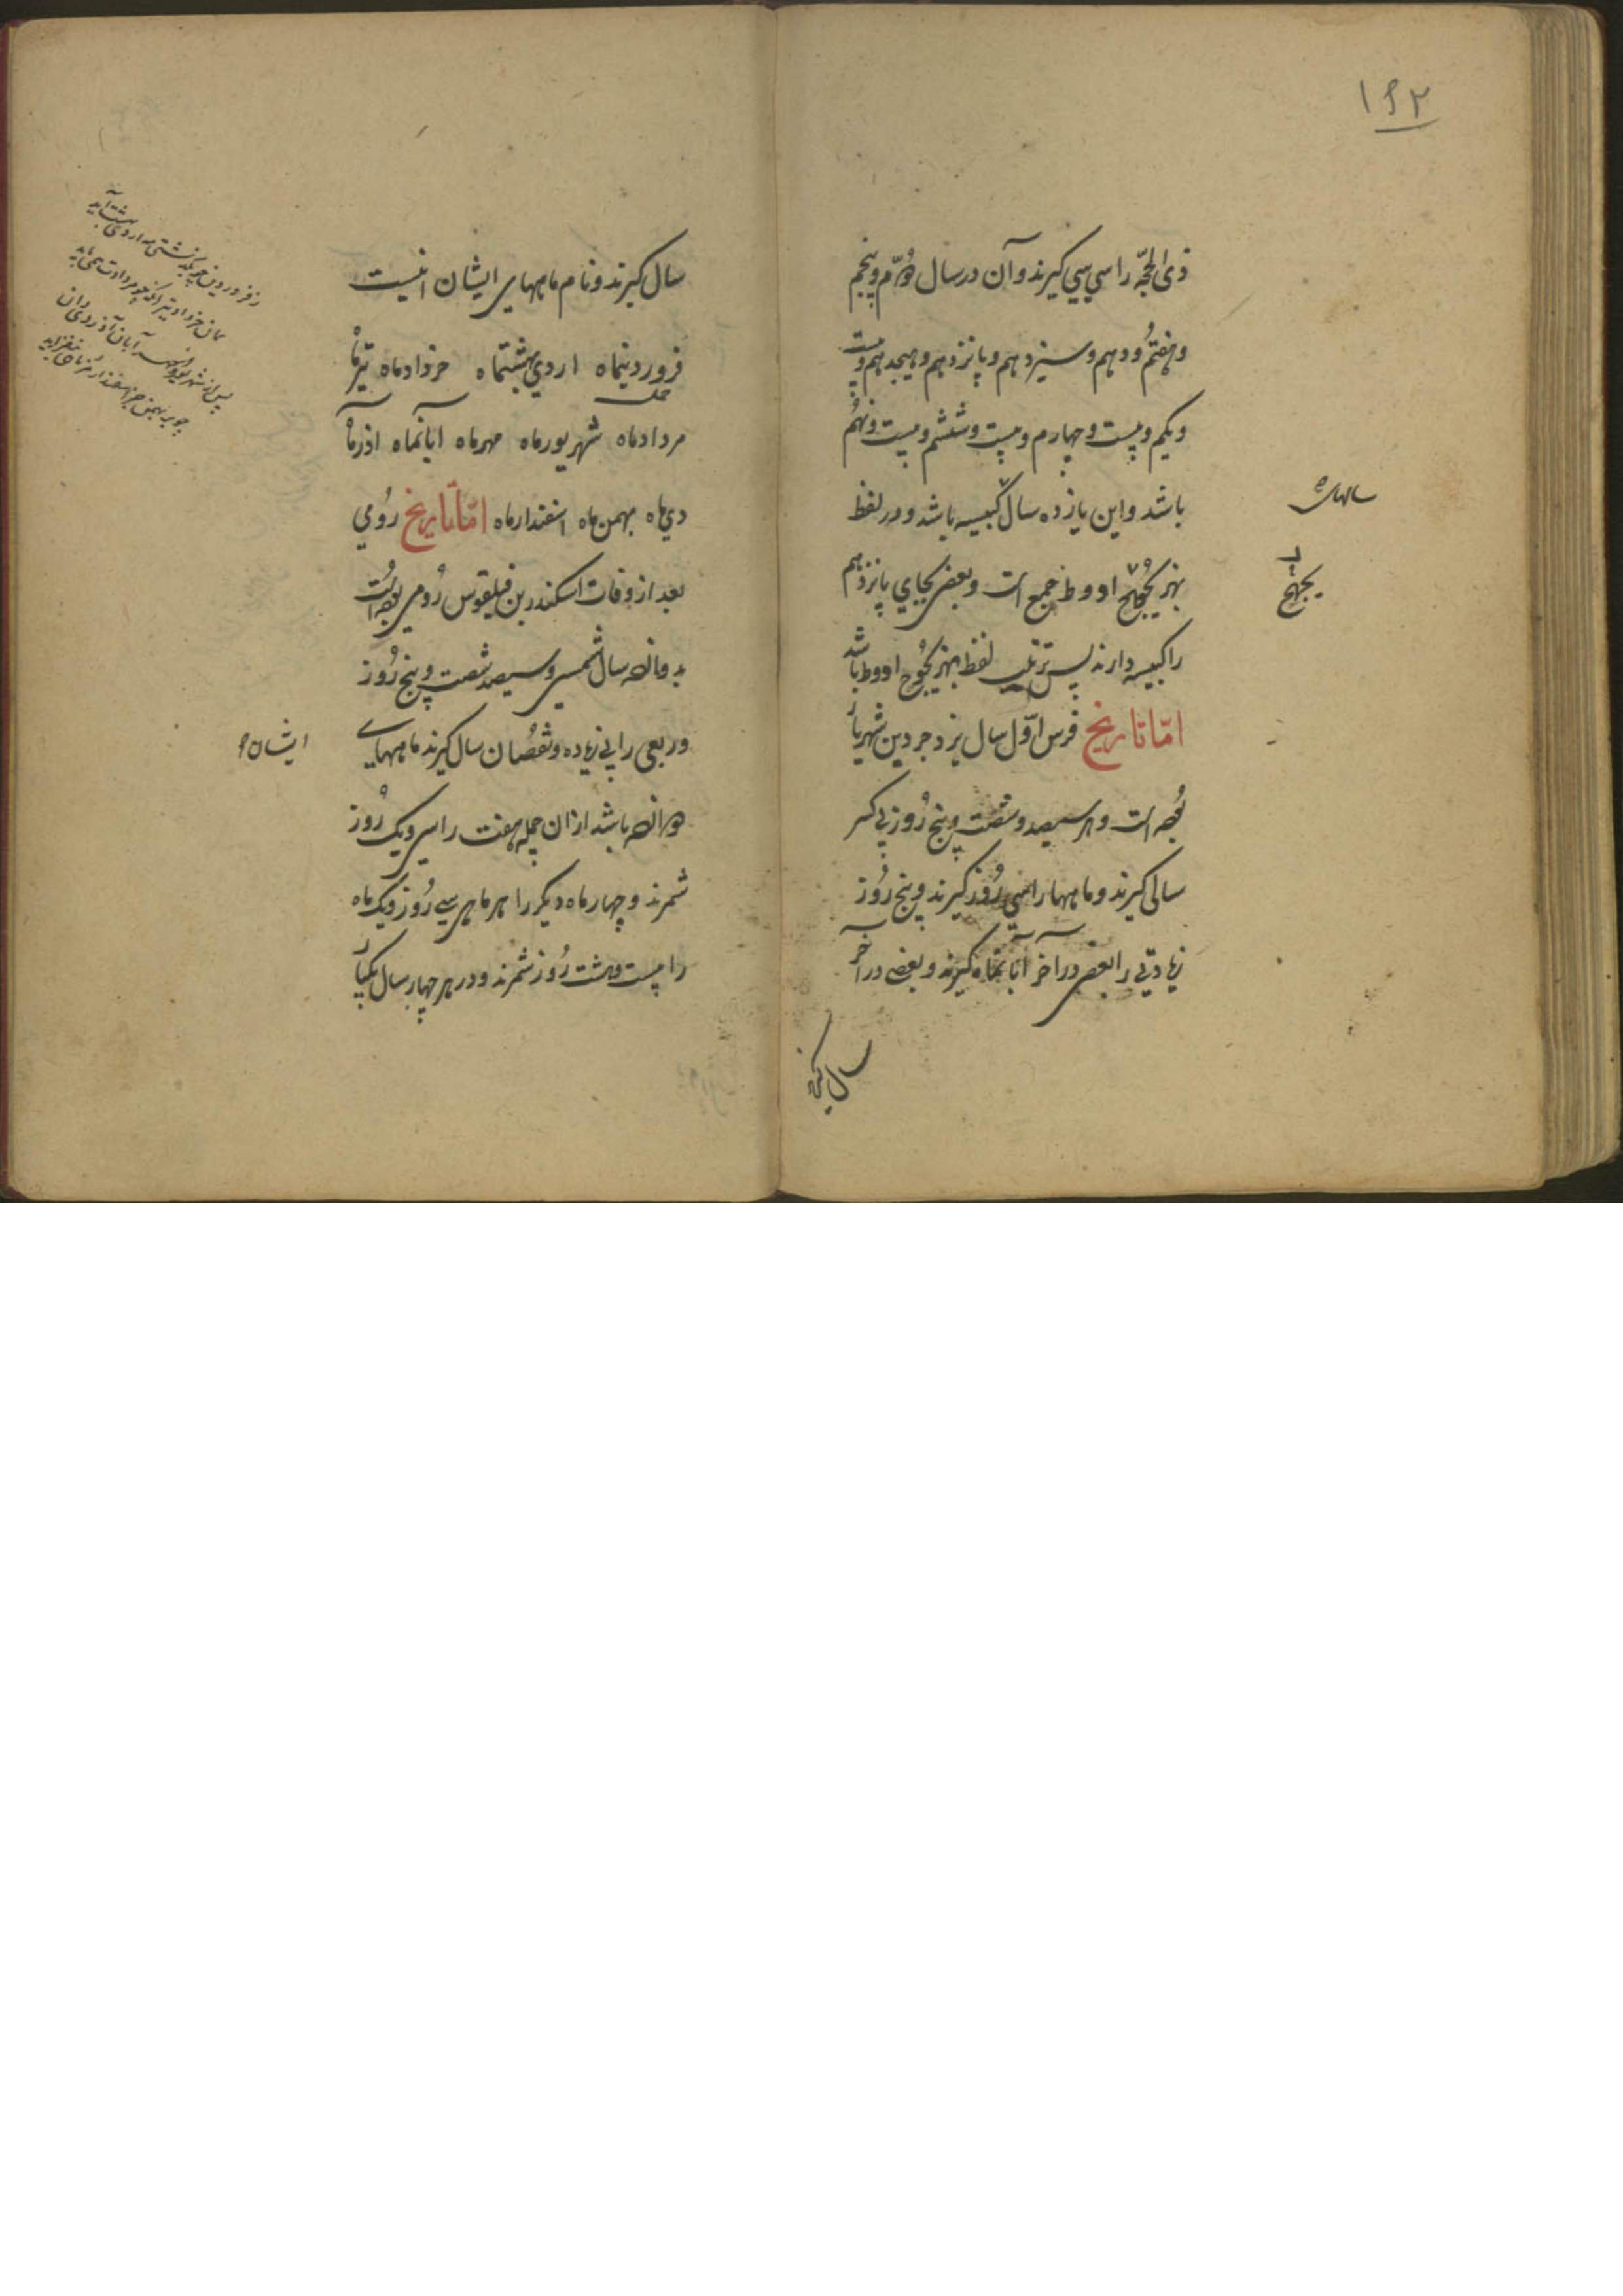 ۱۶۲
ذی الحجّه را سی سی گیرند و آن در سال دوّم و پنجم
و هفتم و دهم و سیزدهم و پانزدهم و هیجدهم و بیست
و یکم و بیست و چهارم و بیست و ششم و بیست و نهم
باشد و این یازده سال کبیسه باشد و در لفظ
سالهای
بهزیجوح ادوط جمع است و بعضی بجای پانزدهم
را کبیسه دارند پس ترتیب لفظ بهزیجوح ادوط باشد
امّا تاریخ فرس اوّل سال یزدجرد بن شهریار
بوده است و هر سیصد و شصت و پنج روز بی کسر
سالی گیرند و ماهها را سی روز گیرند و پنج روز
زیادتی را بعضی در آخر آبانماه گیرند و بعضی در آخر
سال گیرند
سال گیرند و نام ماههای ایشان اینست
فروردینماه اردی بهشتماه خردادماه تیرماه
مردادماه شهریورماه مهرماه آبانماه آذرماه
دی ماه بهمن ماه اسفندارماه امّا تاریخ رومی
بعد از وفات اسکندر بن فیلقوس رومی بوده است
به دوازده سال شمسی و سیصد شصت و پنج روز
و ربعی را بی زیاده و نقصان سال گیرند ماههای
ایشان
دوازده باشد از آن جمله هفت را سی و یک روز
شمرند و چهار ماه دیگر را هر ماهی سی روز و یک ماه
را بیست و هشت روز شمرند و در هر چهار سال یکبار
ز فروردین چو بگذشتی مه اردی بهشت آید
بمان خرداد و تیر آنگه چو مردادت همی باید
پس از شهریور و مهر آبان آذر و دی دان
چو بر بهمن جز اسفندارمذ ماهی نیفزاید